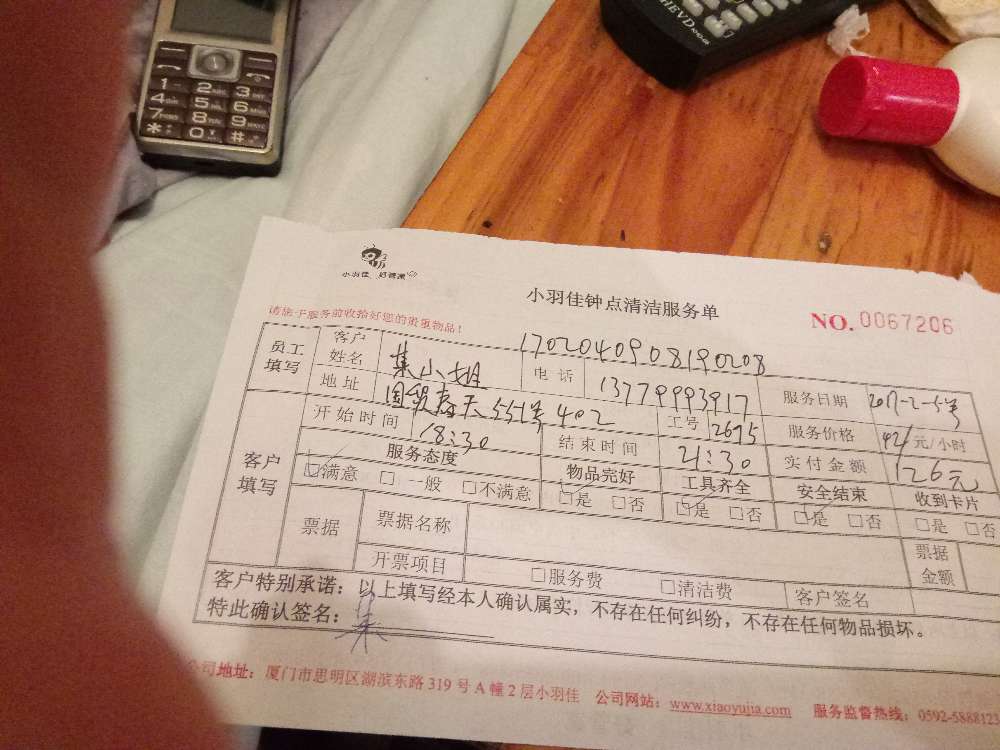 1
2 ABC
3
4
5 JKL
6
7
8 TUV
9 WXYZ
*
0
#
HEVD
小羽佳 好管家
小羽佳钟点清洁服务单
请您于服务前收拾好您的贵重物品！
NO. 0067206
1702040908190208
员工填写
客户姓名 集小姐 电话 13779993917 服务日期 2017-2-5号
地址 国贸春天551号402 工号 2695 服务价格 42/元/小时
客户填写
开始时间 18:30 结束时间 21:30 实付金额 126元
服务态度 物品完好 工具齐全 安全结束 收到卡片
☑满意 □一般 □不满意 ☑是 □否 ☑是 □否 ☑是 □否 □是 □否
票据 票据名称 票据金额
开票项目 □服务费 □清洁费 客户签名
客户特别承诺：以上填写经本人确认属实，不存在任何纠纷，不存在任何物品损坏。
特此确认签名：集
公司地址：厦门市思明区湖滨东路319号A幢2层小羽佳 公司网站：www.xiaoyujia.com 服务监督热线：0592-5888123